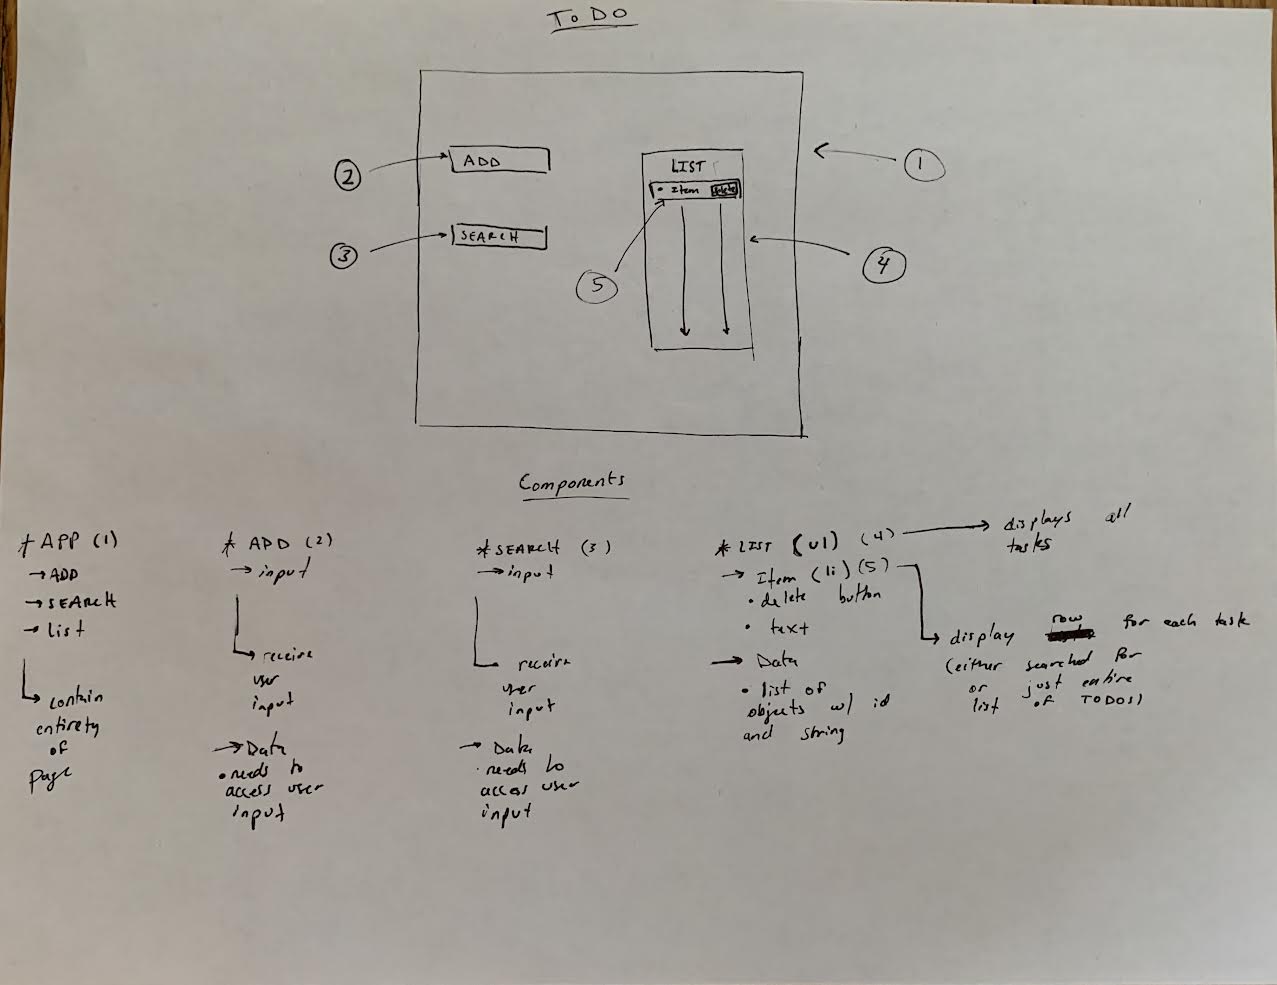 TO DO
ADD
SEARCH
LIST
• Item delete
1
2
3
4
5
Components
* APP (1)
→ ADD
→ SEARCH
→ List
contain
entirety
of
page
* ADD (2)
→ input
receive
user
input
→ Data
• needs to
access user
input
* SEARCH (3)
→ input
receive
user
input
→ Data
• needs to
access user
input
* LIST (ul) (4) → displays all
tasks
→ Item (li) (5)
• delete button
• text
→ Data
• list of
objects w/ id
and string
display row for each task
(either searched for
or just entire
list of TODOS)